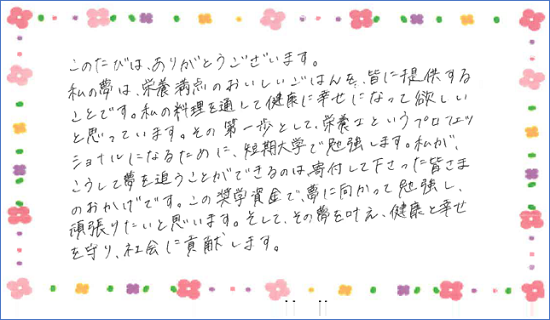 このたびは、ありがとうございます。
私の夢は、栄養満点のおいしいごはんを、皆に提供する
ことです。私の料理を通して健康に幸せになって欲しい
と思っています。その第一歩として、栄養士というプロフェッ
ショナルになるために、短期大学で勉強します。私が、
こうして夢を追うことができるのは、寄付して下さった皆さま
のおかげです。この奨学資金で、夢に向かって勉強し、
頑張りたいと思います。そして、その夢を叶え、健康と幸せ
を守り、社会に貢献します。